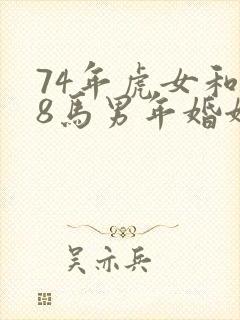 74年虎女和
8馬男年婚姻
吴亦兵